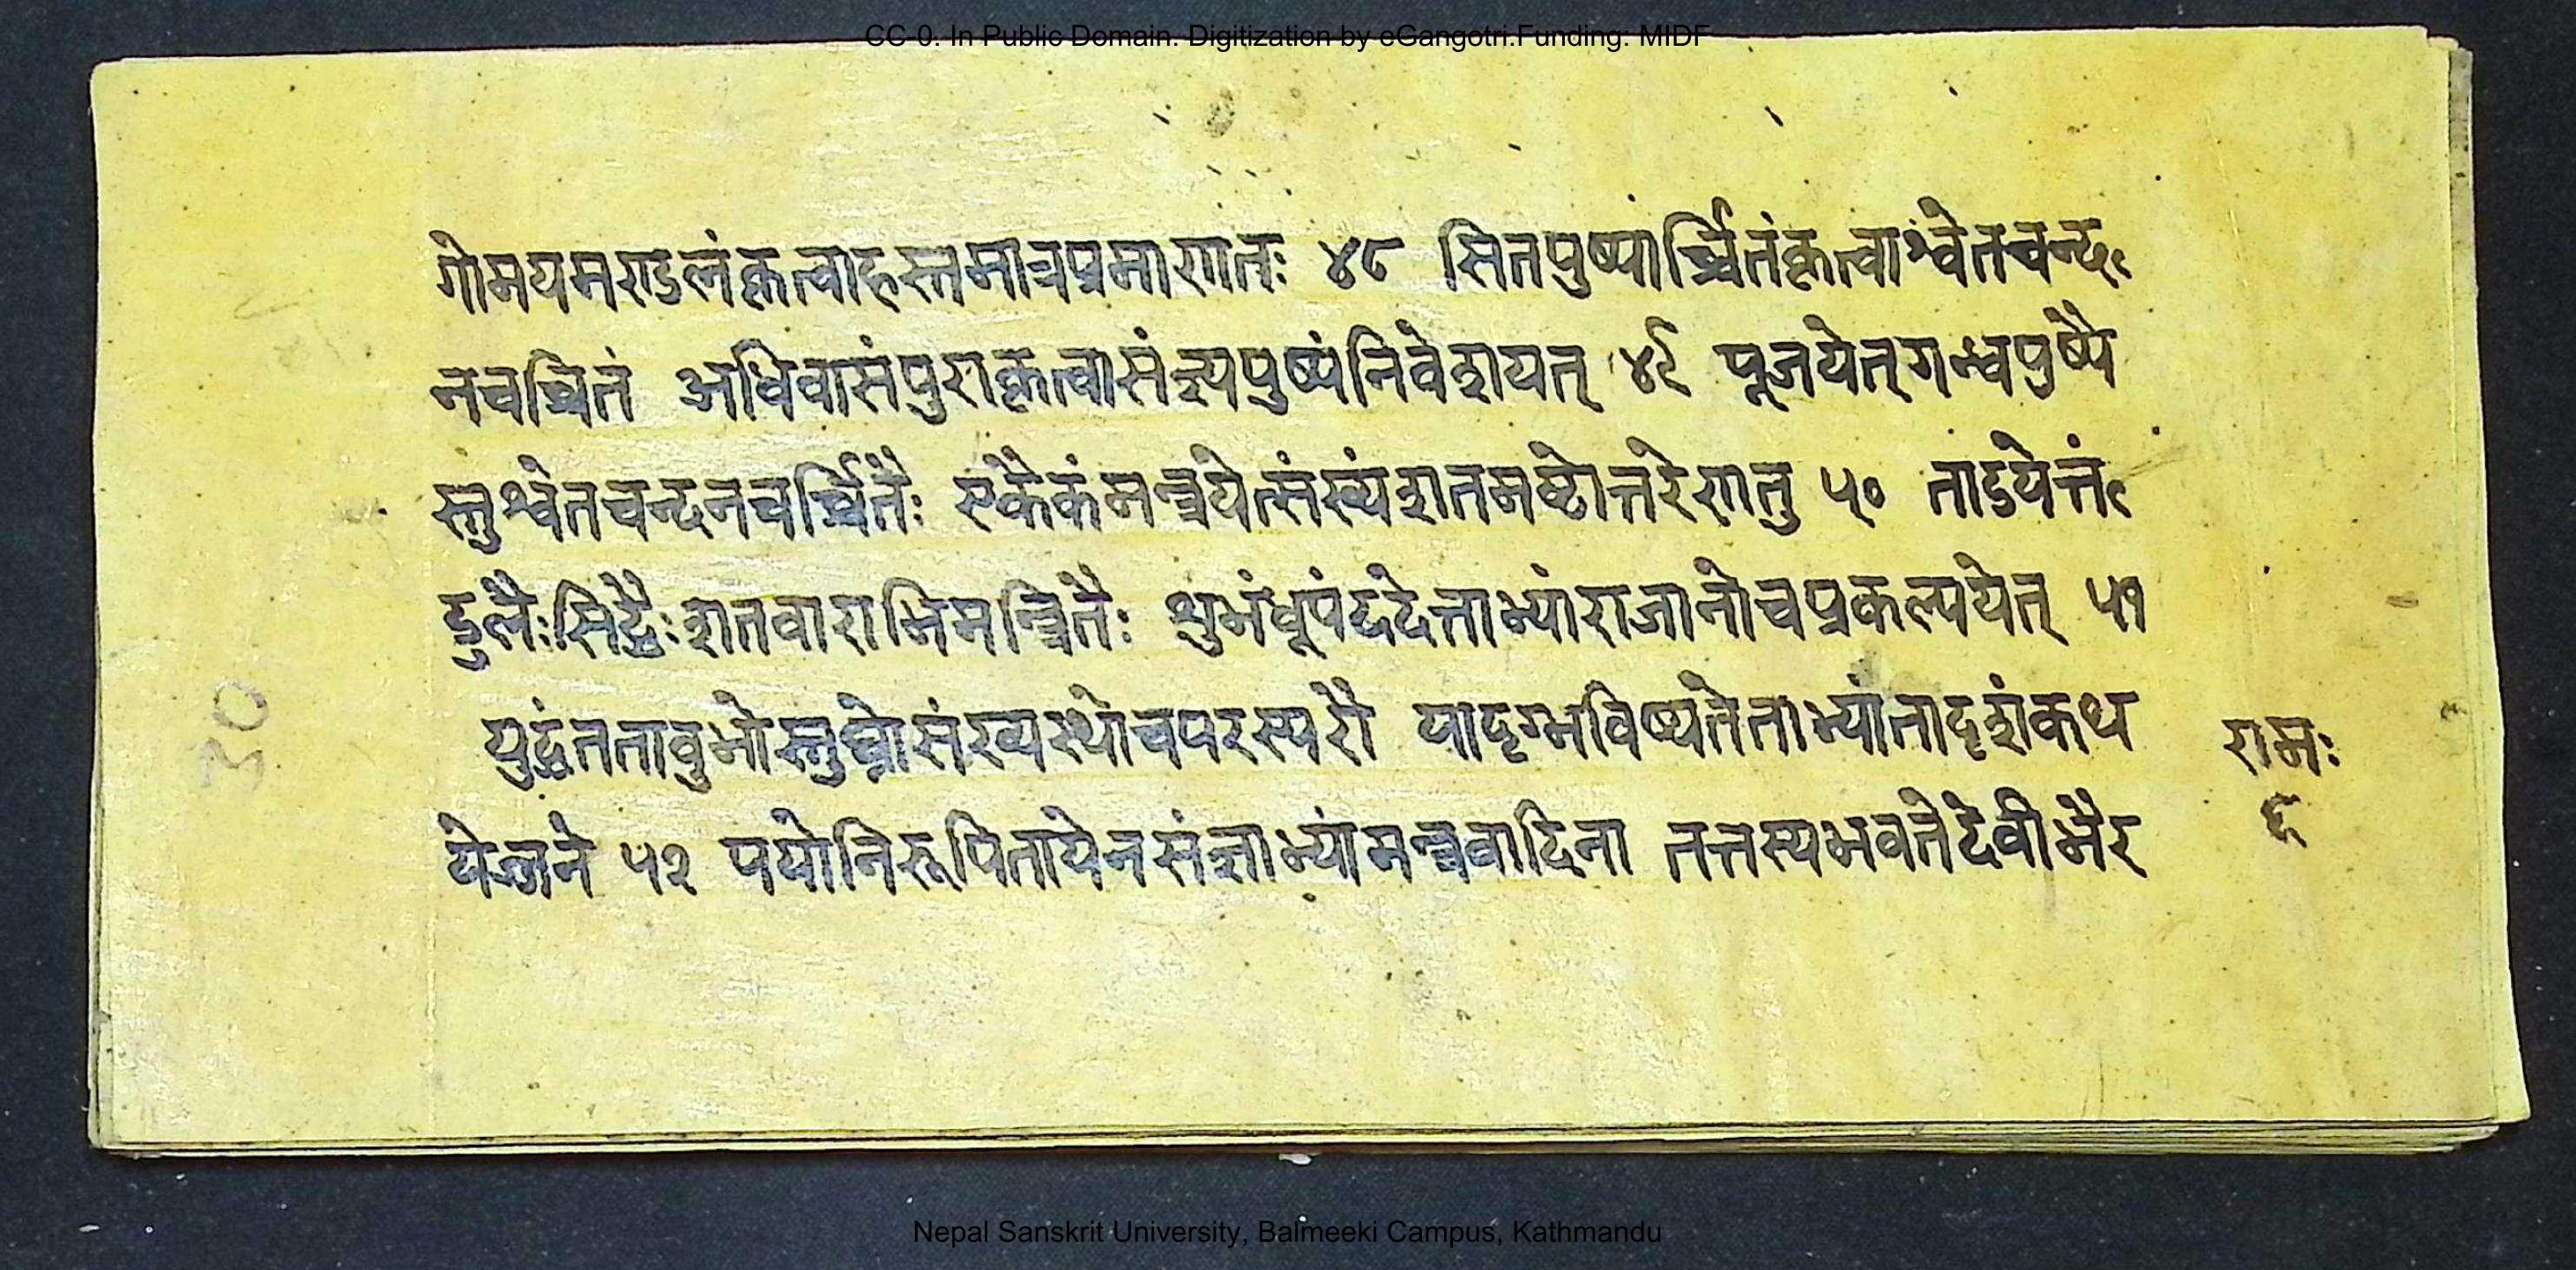 CC-0. In Public Domain. Digitization by eGangotri.Funding: MIDF
गोमयमण्डलंकृत्वाहस्तमात्रप्रमाणतः ४८ सितपुष्पार्च्चितंकृत्वाश्वेतचन्द
नचर्च्चितं अधिवासंपुराकृत्वासंज्ञ्यपुष्पंनिवेशयत् ४९ पूजयेत्गन्धपुष्पै
स्तुश्वेतचन्दनचर्च्चितैः एकैकंमन्त्रयेत्संख्यंशतमष्टोत्तरेणतु ५० ताडयेत्तं
डुलैःसिद्धैःशतवाराभिमन्त्रितैः शुभंधूपंददेत्ताभ्यांराजानोचप्रकल्पयेत् ५१
युद्धंततावुभोस्तुघ्रोसंख्यस्थोचपरस्परौ यादृग्भविष्यतेताभ्यांतादृशंकथ
येज्जने ५२ पयोनिरूपितायेनसंज्ञाभ्यांमन्त्रवादिना तत्तस्यभवतेदेवीभैर
रामः
९
30
Nepal Sanskrit University, Balmeeki Campus, Kathmandu